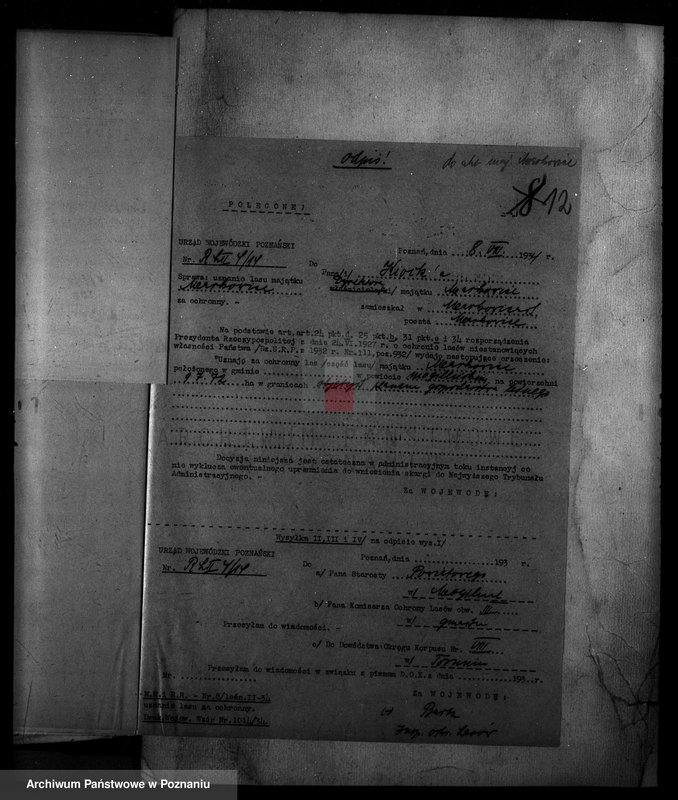 Odpis!
do akt maj.
8 12
POLECONE!
URZĄD WOJEWÓDZKI POZNAŃSKI
Poznań, dnia 8. VIII 1934 r.
Nr.
Do
Pana
Sprawa: uznanie lasu majątku
majątku
za ochronny. -
zamieszkał w
poczta
Na podstawie art.art.24 pkt.d. 25 pkt.b, 31 pkt.e i 34 rozporządzenia
Prezydenta Rzeczypospolitej z dnia 24.VI.1927 r.o ochronie lasów niestanowiących
własności Państwa /Dz.U.R.P.z 1932 r. Nr.111,poz.932/ wydaję następujące orzeczenie:
"Uznaję za ochronny las /część lasu/ majątku
położonego w gminie w powiecie mogileńskim, na powierzchni
ha w granicach
Decyzja niniejsza jest ostateczna w administracyjnym toku instancyj co
nie wyklucza ewentualnego uprawnienia do wniesienia skargi do Najwyższego Trybunału
Administracyjnego. -
Za WOJEWODĘ:
Wysyłka II,III i IV/ na odpisie wys.I/
URZĄD WOJEWÓDZKI POZNAŃSKI
Poznań,dnia 193 r.
Nr.
Do
a/ Pana Starosty Powiatowego
w/ Mogilnie
b/ Pana Komisarza Ochrony Lasów obw. III
w/ Gnieźnie
Przesyłam do wiadomości. -
c/ Do Dowództwa Okręgu Korpusu Nr. VIII
w/ Toruniu
Przesyłam do wiadomości w związku z pismem D.O.K.z dnia 193 r.
Nr.
Za WOJEWODĘ:
M.R.i R.R. - Nr.8/leśn.II-34
uznanie lasu za ochronny.
Druk.Wojew. Wzór Nr.1014/34.
Insp. och. Lasów
Archiwum Państwowe w Poznaniu